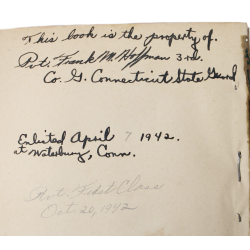 This book is the property of.
Pvt. Frank M. Hoffman 3rd.
Co. G. Connecticut State Guard
Enlisted April 7 1942.
at Waterbury, Conn.
Pvt. First Class
Oct 26, 1942